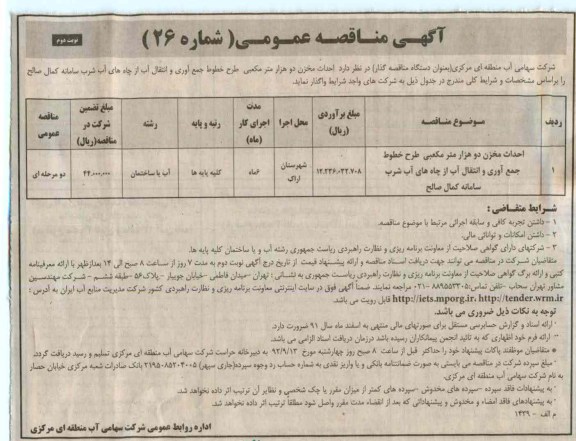 آگهی مناقصه عمومی( شماره ۲۶ )
نوبت دوم
شرکت سهامی آب منطقه ای مرکزی(بعنوان دستگاه مناقصه گذار) در نظر دارد احداث مخزن دو هزار متر مکعبی طرح خطوط جمع آوری و انتقال آب از چاه های آب شرب سامانه کمال صالح
را براساس مشخصات و شرایط کلی مندرج در جدول ذیل به شرکت های واجد شرایط واگذار نماید.
ردیف
موضوع مناقصه
مبلغ برآوردی (ریال)
محل اجرا
مدت اجرای کار (ماه)
رتبه و پایه
رشته
مبلغ تضمین شرکت در مناقصه(ریال)
مناقصه عمومی
۱
احداث مخزن دو هزار متر مکعبی طرح خطوط
جمع آوری و انتقال آب از چاه های آب شرب
سامانه کمال صالح
شهرستان اراک
۶ماه
کلیه پایه ها
آب یا ساختمان
دو مرحله ای
شرایط متقاضی :
۱ - داشتن تجربه کافی و سابقه اجرائی مرتبط با موضوع مناقصه.
۲ - داشتن امکانات و توانائی مالی.
۳ - شرکتهای دارای گواهی صلاحیت از معاونت برنامه ریزی و نظارت راهبردی ریاست جمهوری رشته آب و یا ساختمان کلیه پایه ها.
متقاضیان شرکت در مناقصه می توانند جهت دریافت اسناد مناقصه و ارائه پیشنهاد قیمت از تاریخ درج آگهی نوبت دوم به مدت ۷ روز از ساعت ۸ صبح الی ۱۴ بعدازظهر با ارائه معرفینامه
کتبی و ارائه برگ گواهی صلاحیت از معاونت برنامه ریزی و نظارت راهبردی ریاست جمهوری به نشانی : تهران -میدان فاطمی -خیابان جویبار -پلاک ۵۶ -طبقه ششم - شرکت مهندسین
مشاور تهران سحاب -تلفن تماس: ۸۸۹۵۵۳۳۰۵-۰۲۱ مراجعه نمایند. ضمناً آگهی فوق در سایت اینترنتی معاونت برنامه ریزی و نظارت راهبردی کشور شرکت مدیریت منابع آب ایران به آدرس :
http://iets.mporg.ir، http://tender.wrm.ir قابل رویت می باشد.
توجه به نکات ذیل ضروری می باشد.
- ارائه اسناد و گزارش حسابرسی مستقل برای صورتهای مالی منتهی به اسفند ماه سال ۹۱ ضرورت دارد.
- ارائه فرم خود اظهاری که به تائید انجمن پیمانکاران رسیده باشد درزمان دریافت اسناد الزامی می باشد.
* متقاضیان موظفند پاکات پیشنهاد خود را حداکثر قبل از ساعت ۸ صبح روز چهارشنبه مورخ ۹۲/۹/۱۳ به دبیرخانه حراست شرکت سهامی آب منطقه ای مرکزی تسلیم و رسید دریافت گردد.
- مبلغ سپرده شرکت در مناقصه می بایستی به صورت ضمانتنامه بانکی و یا واریز نقدی به شماره حساب رد وجوه سپرده(جاری سپهر) ۲۱۹۵۰۸۵۲۰۴۰۰۵ بانک صادرات شعبه مرکزی خیابان حصار
به نام شرکت سهامی آب منطقه ای مرکزی.
- به پیشنهادات فاقد سپرده -سپرده های مخدوش -سپرده های کمتر از میزان مقرر یا چک شخصی و نظایر آن ترتیب اثر داده نخواهد شد.
- به پیشنهادهای فاقد امضاء و مخدوش و پیشنهاداتی که بعد از انقضاء مدت مقرر واصل شود مطلقاً ترتیب اثر داده نخواهد شد.
م الف - ۱۴۳۹
اداره روابط عمومی شرکت سهامی آب منطقه ای مرکزی